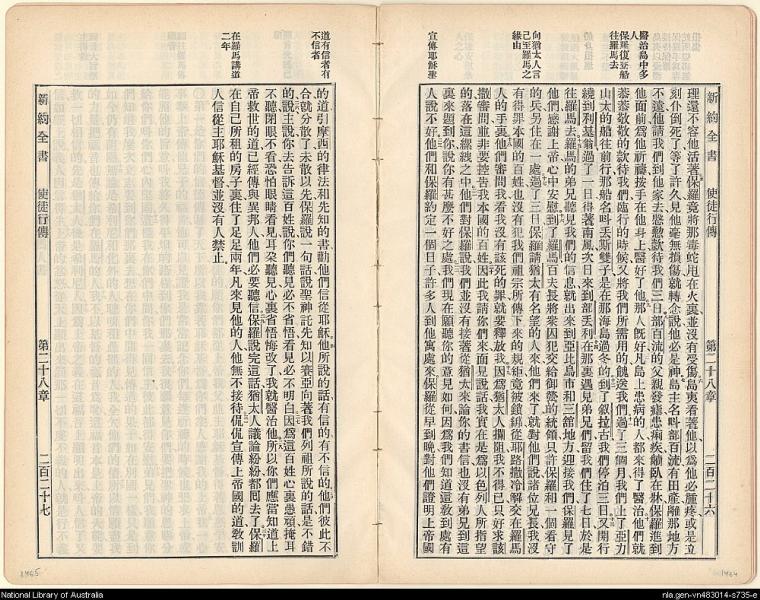 醫治島中多人
保羅復登船往羅馬去
向猶太人言己至羅馬之緣由
宣傳耶穌聖
新約全書 使徒行傳 第二十八章 二百二十六
理還不容他活著保羅竟將那毒蛇甩在火裏並沒有受傷島夷看著他以爲他必腫疼或是立
刻仆倒死了等了許久見他毫無損傷就轉念說他必是神島主名叫部百流有田產離那地方
不遠他請我們到他家去慇懃款待我們三日部百流的父親發瘧患痢疾躺臥在牀保羅進到
他面前爲他祈禱接手在他身上醫好了他那人旣好凡島上患病的人都來得了醫治他們就
恭恭敬敬的款待我們臨行的時候又將我們所需用的餽送我們過了三個月我們上了亞力
山太的船往前行那船名叫丟斯雙子是在那海島過冬的到了叙拉古我們停泊三日又開行
繞到利基翁過了一日得著南風次日來到部丟利在那裏遇見弟兄們留我們住了七日於是
往羅馬去羅馬的弟兄聽見我們的信息就出來到亞比烏市和三舘地方迎接我們保羅見了
他們感謝上帝心中安慰到了羅馬百夫長將衆囚犯交給御營的統領只許保羅和一個看守
的兵另住在一處過了三日保羅請猶太有名望的人來他們來了就對他們說諸位兄長我沒
有得罪本國的百姓也沒有犯我們祖宗所傳下來的規矩竟被鎖綁從耶路撒冷解交在羅馬
人的手裏他們審問我看我沒有該死的罪就要釋放我因爲猶太人攔阻我不得已只好求該
撒審問並非要控告我本國的百姓因此我請你們來面見說話我實在是爲以色列人所指望
的落在這纙綫之中他們對保羅說我們並沒有接著從猶太來論你的書信也沒有弟兄到這
裏來題到你說你有甚麽不好之處我們現在願聽你的意見如何因爲我們知道這敎到處有
人說不好他們和保羅約定一個日子許多人到他寓處來保羅從早到晚對他們證明上帝國
道有信者有不信者
在羅馬講道二年
的道引摩西的律法和先知的書勸他們信從耶穌他所說的話有信的有不信的他們彼此不
合就分散了未散以先保羅說一句話說聖神託先知以賽亞向著我們列祖所說的話是不錯
的說主說你去告訴這百姓說你們聽見必不省悟看見必不明白因爲這百姓心裏愚頑掩耳
不聽閉眼不看恐怕眼睛看見耳朶聽見心裏省悟悔改了我就醫治他所以你們應當知道上
帝救世的道已經傳與異邦人他們必要聽信保羅說完這話猶太人議論紛紛都囘去了保羅
在自己所租的房子裏住了足足兩年凡來見他的人他無不接待侃侃宣傳上帝國的道敎訓
人信從主耶穌基督並沒有人禁止
新約全書 使徒行傳 第二十八章 二百二十七
National Library of Australia
nla.gen-vn483014-s735-e